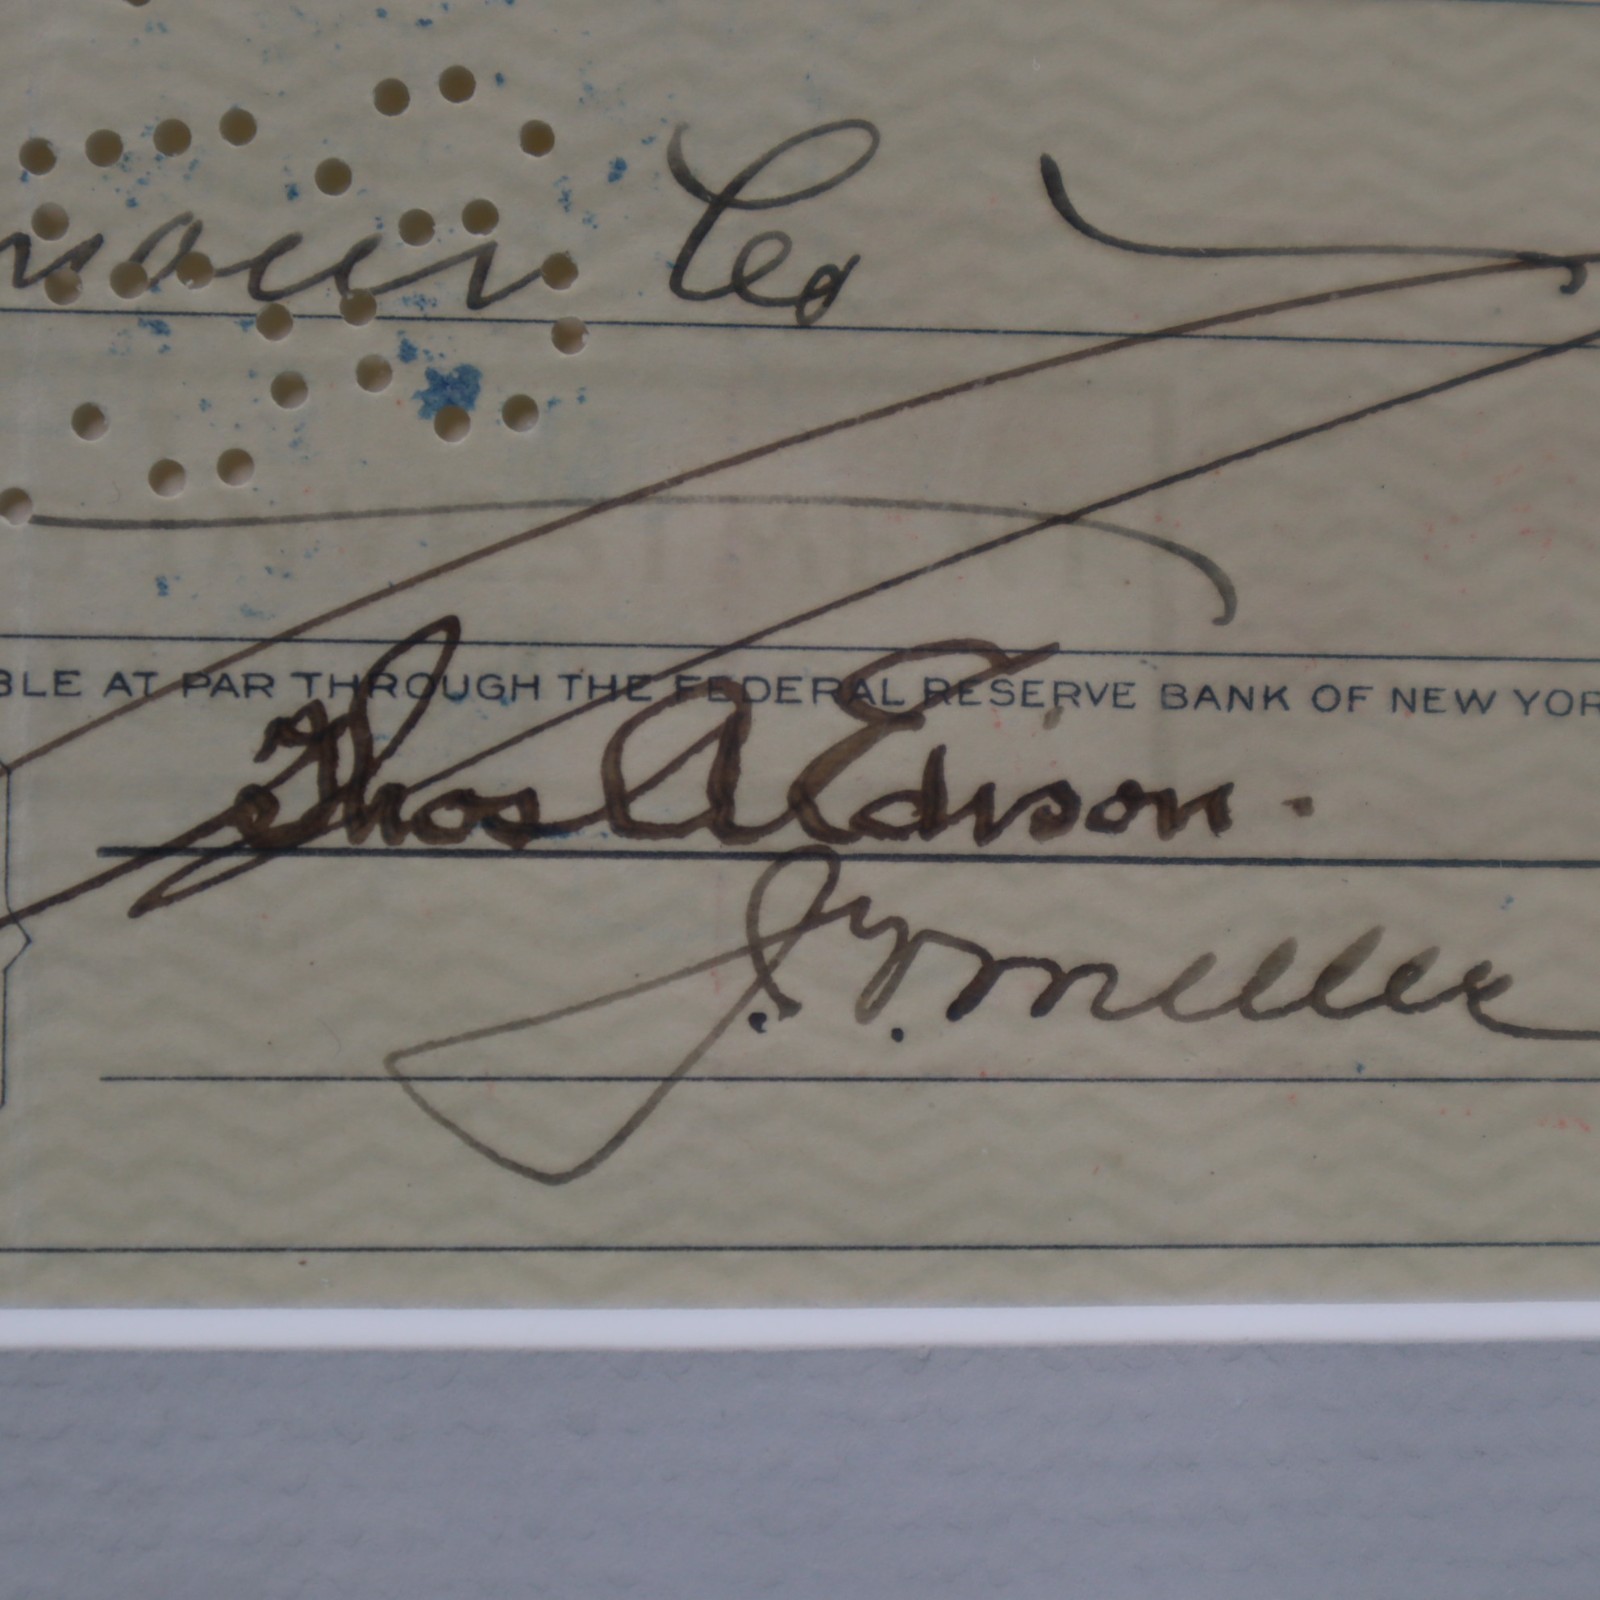 Co
BLE AT PAR THROUGH THE FEDERAL RESERVE BANK OF NEW YOR
Thos A Edison.
Miller